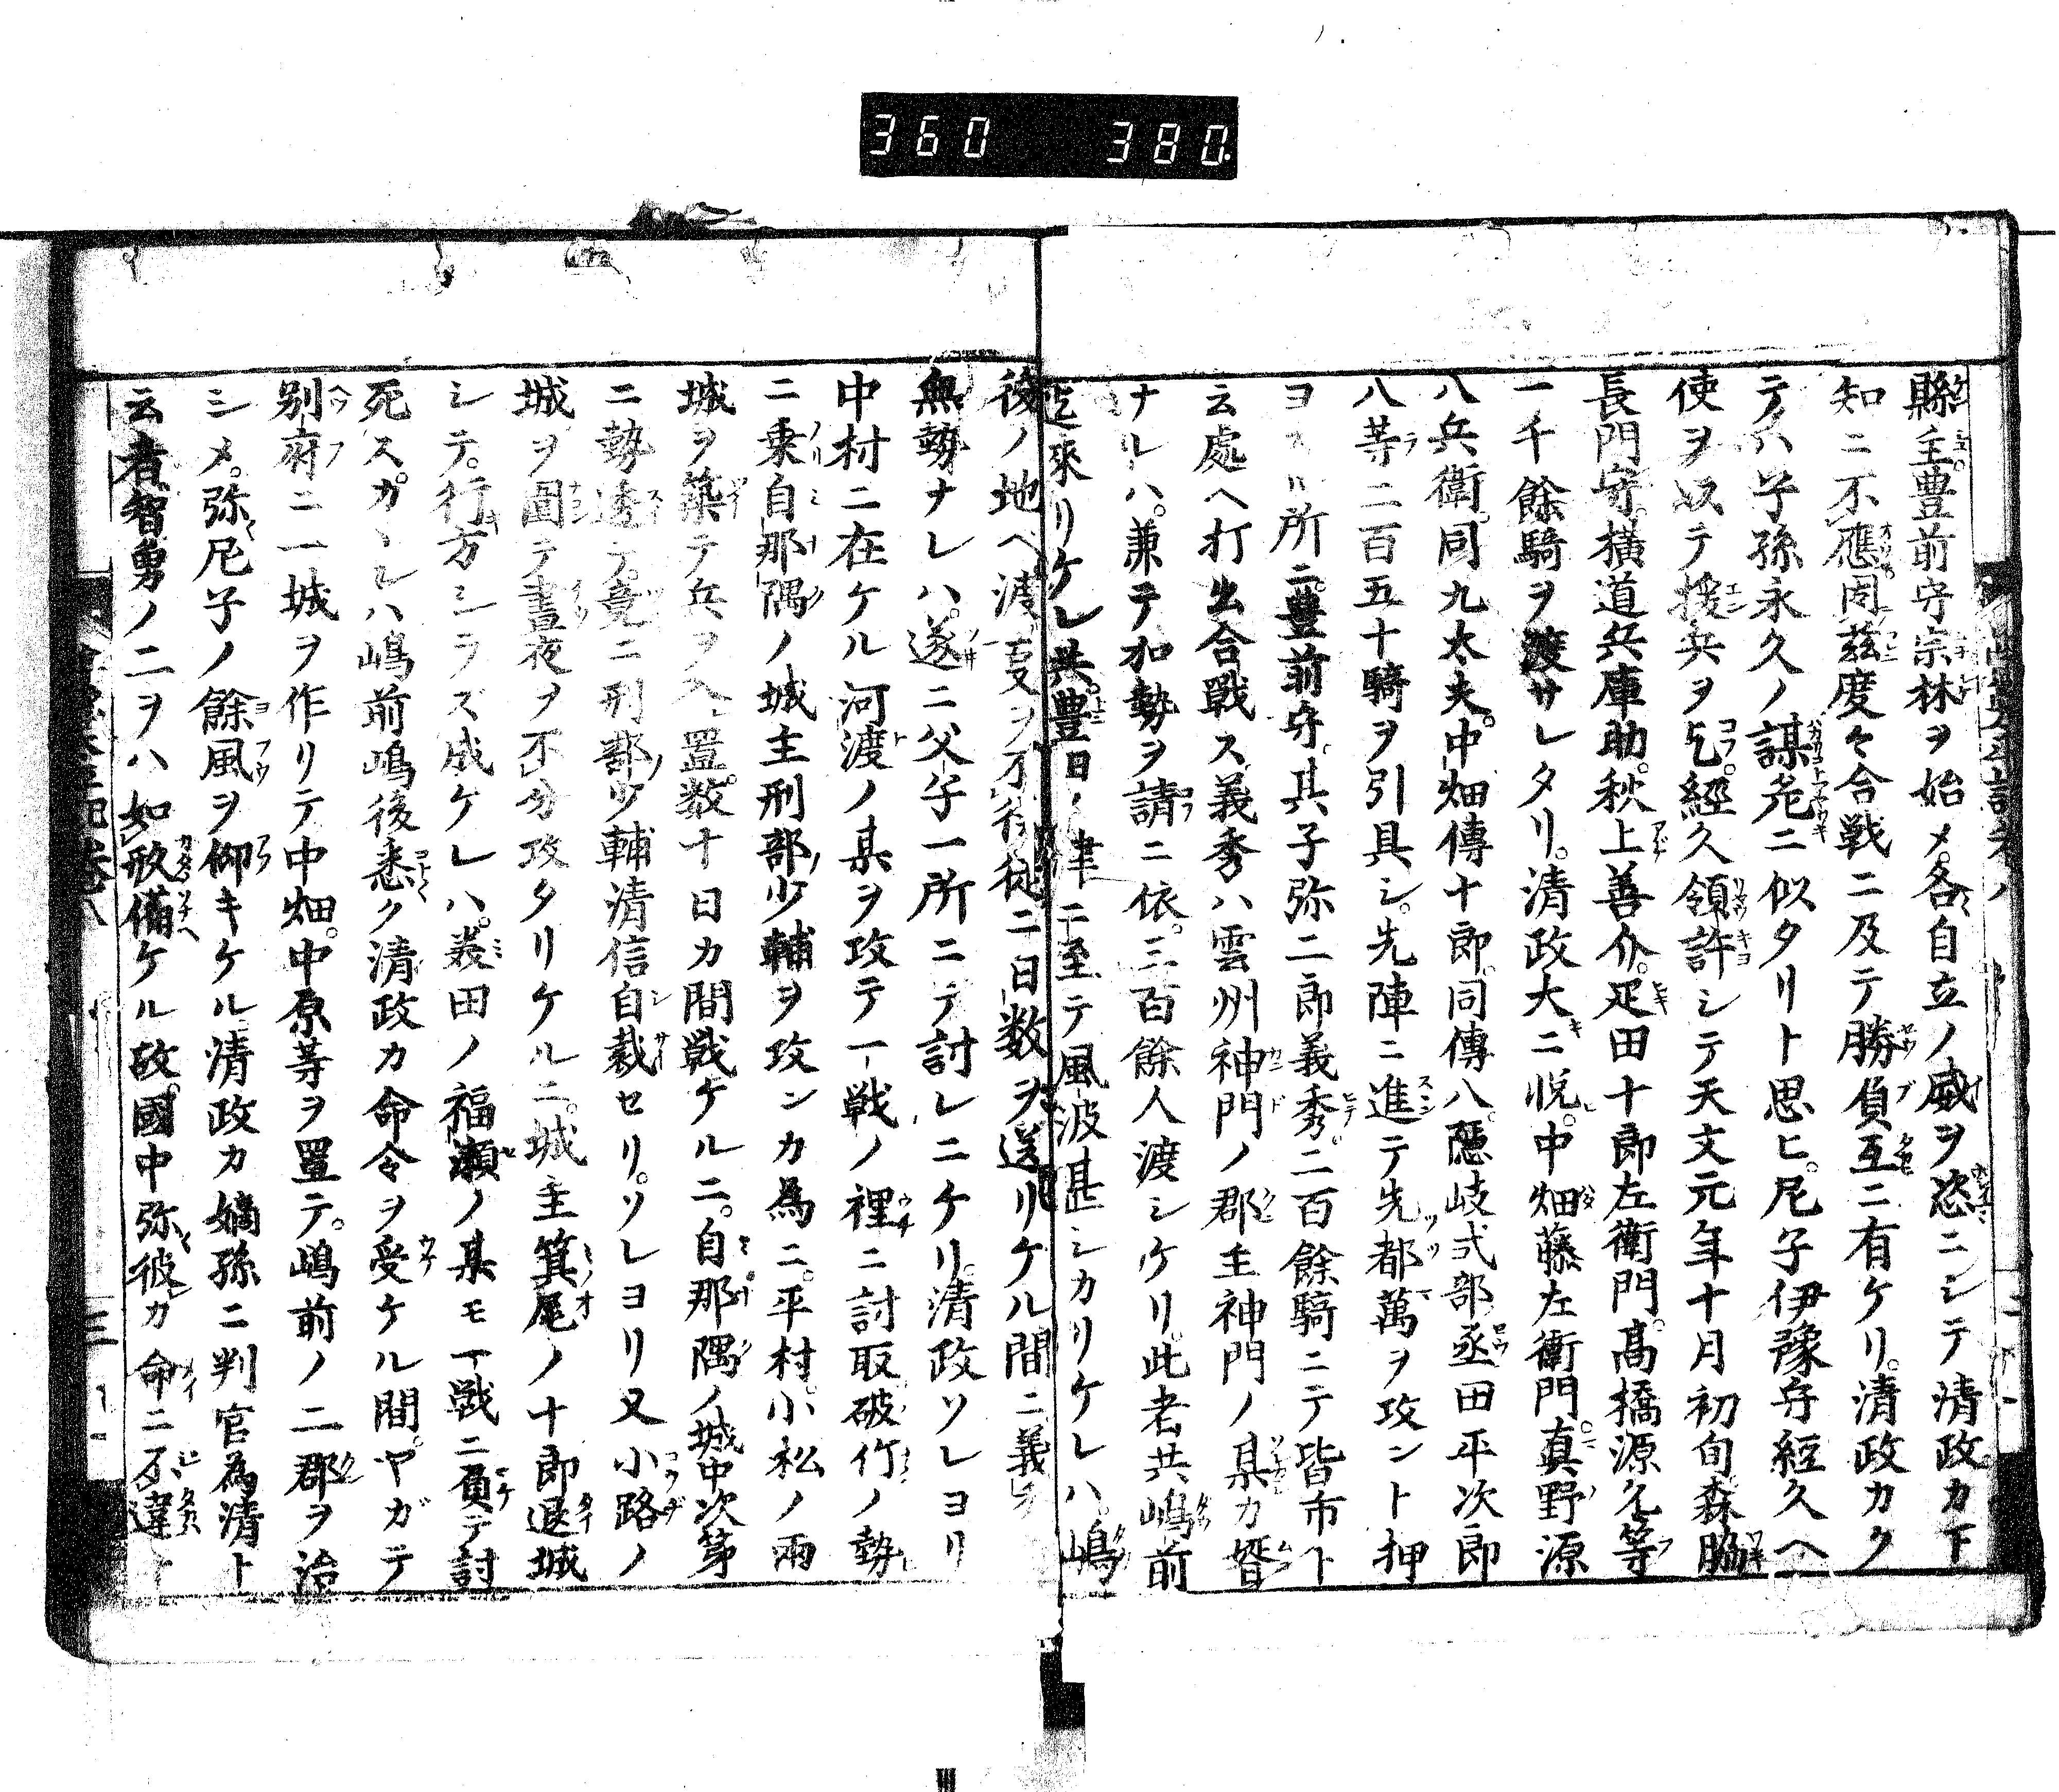 360 380.
縣主豊前守宗林ヲ始メ各自立ノ威ヲ恣ニシテ清政カ下
知ニ不應因茲度々合戦ニ及テ勝負互ニ有ケリ清政カク
テハ子孫永久ノ謀尠ニ似タリト思ヒ尼子伊豫守経久ヘ
使ヲ以テ援兵ヲ乞經久領許シテ天文元年十月初旬森脇
長門守横道兵庫助秋上善介疋田十郎左衛門高橋源允等
一千餘騎ヲ渡サレタリ清政大ニ悦中畑藤左衛門真野源
八兵衛同九太夫中畑傳十郎同傳八隠岐式部丞田平次郎
八等二百五十騎ヲ引具シ先陣ニ進テ先都萬ヲ攻ント押
ヨスル所ニ豊前守其子弥二郎義秀二百餘騎ニテ皆市ト
云處ヘ打出合戰ス義秀ハ雲州神門ノ郡主神門ノ某カ婿
ナレハ兼テ加勢ヲ請ニ依三百餘人渡シケリ此者共嶋前
迄來リケレ共豊田ノ津ニ至テ風波甚シカリケレハ嶋
後ノ地ヘ渡夏ヲ不得徒ニ日数ヲ送リケル間ニ義秀
無勢ナレハ遂ニ父子一所ニテ討レニケリ清政ソレヨリ
中村ニ在ケル河渡ノ某ヲ攻テ一戦ノ裡ニ討取破竹ノ勢
ニ乗自那隅ノ城主刑部少輔ヲ攻ンカ為ニ平村小松ノ兩
城ヲ築テ兵ヲ入置数十日カ間戦ケルニ自那隅ノ城中次第
ニ勢透テ竟ニ刑部少輔清信自裁セリソレヨリ又小路ノ
城ヲ圍テ晝夜ヲ不分攻タリケルニ城主箕尾ノ十郎退城
シテ行方シラズ成ケレハ美田ノ福瀬ノ某モ一戦ニ負テ討
死スカヽレハ嶋前嶋後悉ク清政カ命令ヲ受ケル間ヤガテ
別府ニ一城ヲ作リテ中畑中原等ヲ置テ嶋前ノ二郡ヲ治
シメ弥尼子ノ餘風ヲ仰キケル清政カ嫡孫ニ判官為清ト
云者智勇ノ二ヲハ如形備ケル故國中弥彼カ命ニ不違ト
三